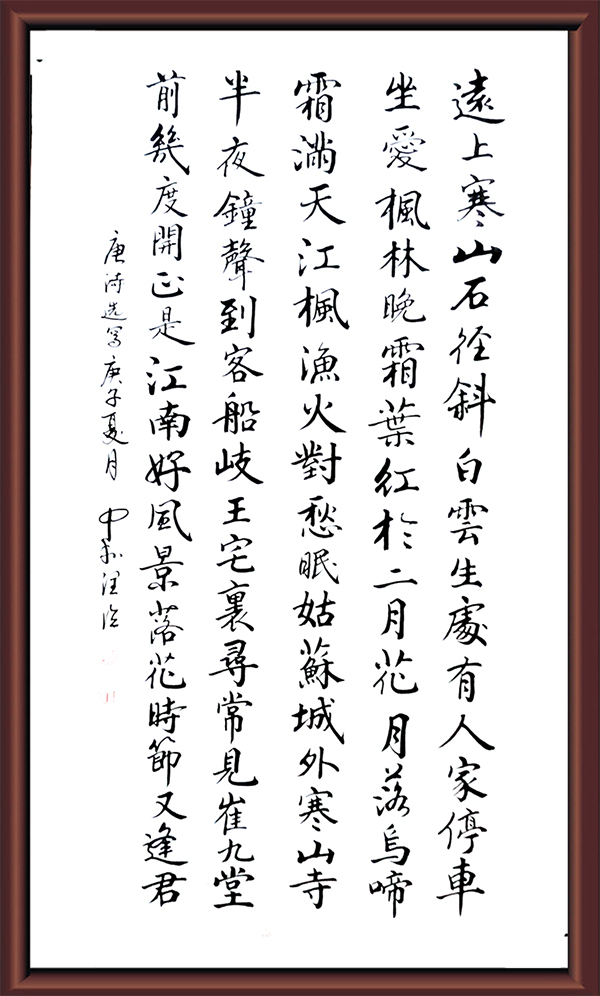 遠上寒山石径斜白雲生處有人家停車
坐愛楓林晚霜葉红於二月花月落烏啼
霜滿天江楓漁火對愁眠姑蘇城外寒山寺
半夜鐘聲到客船岐王宅裏尋常見崔九堂
前幾度開正是江南好風景落花時節又逢君
唐诗选写庚子夏月